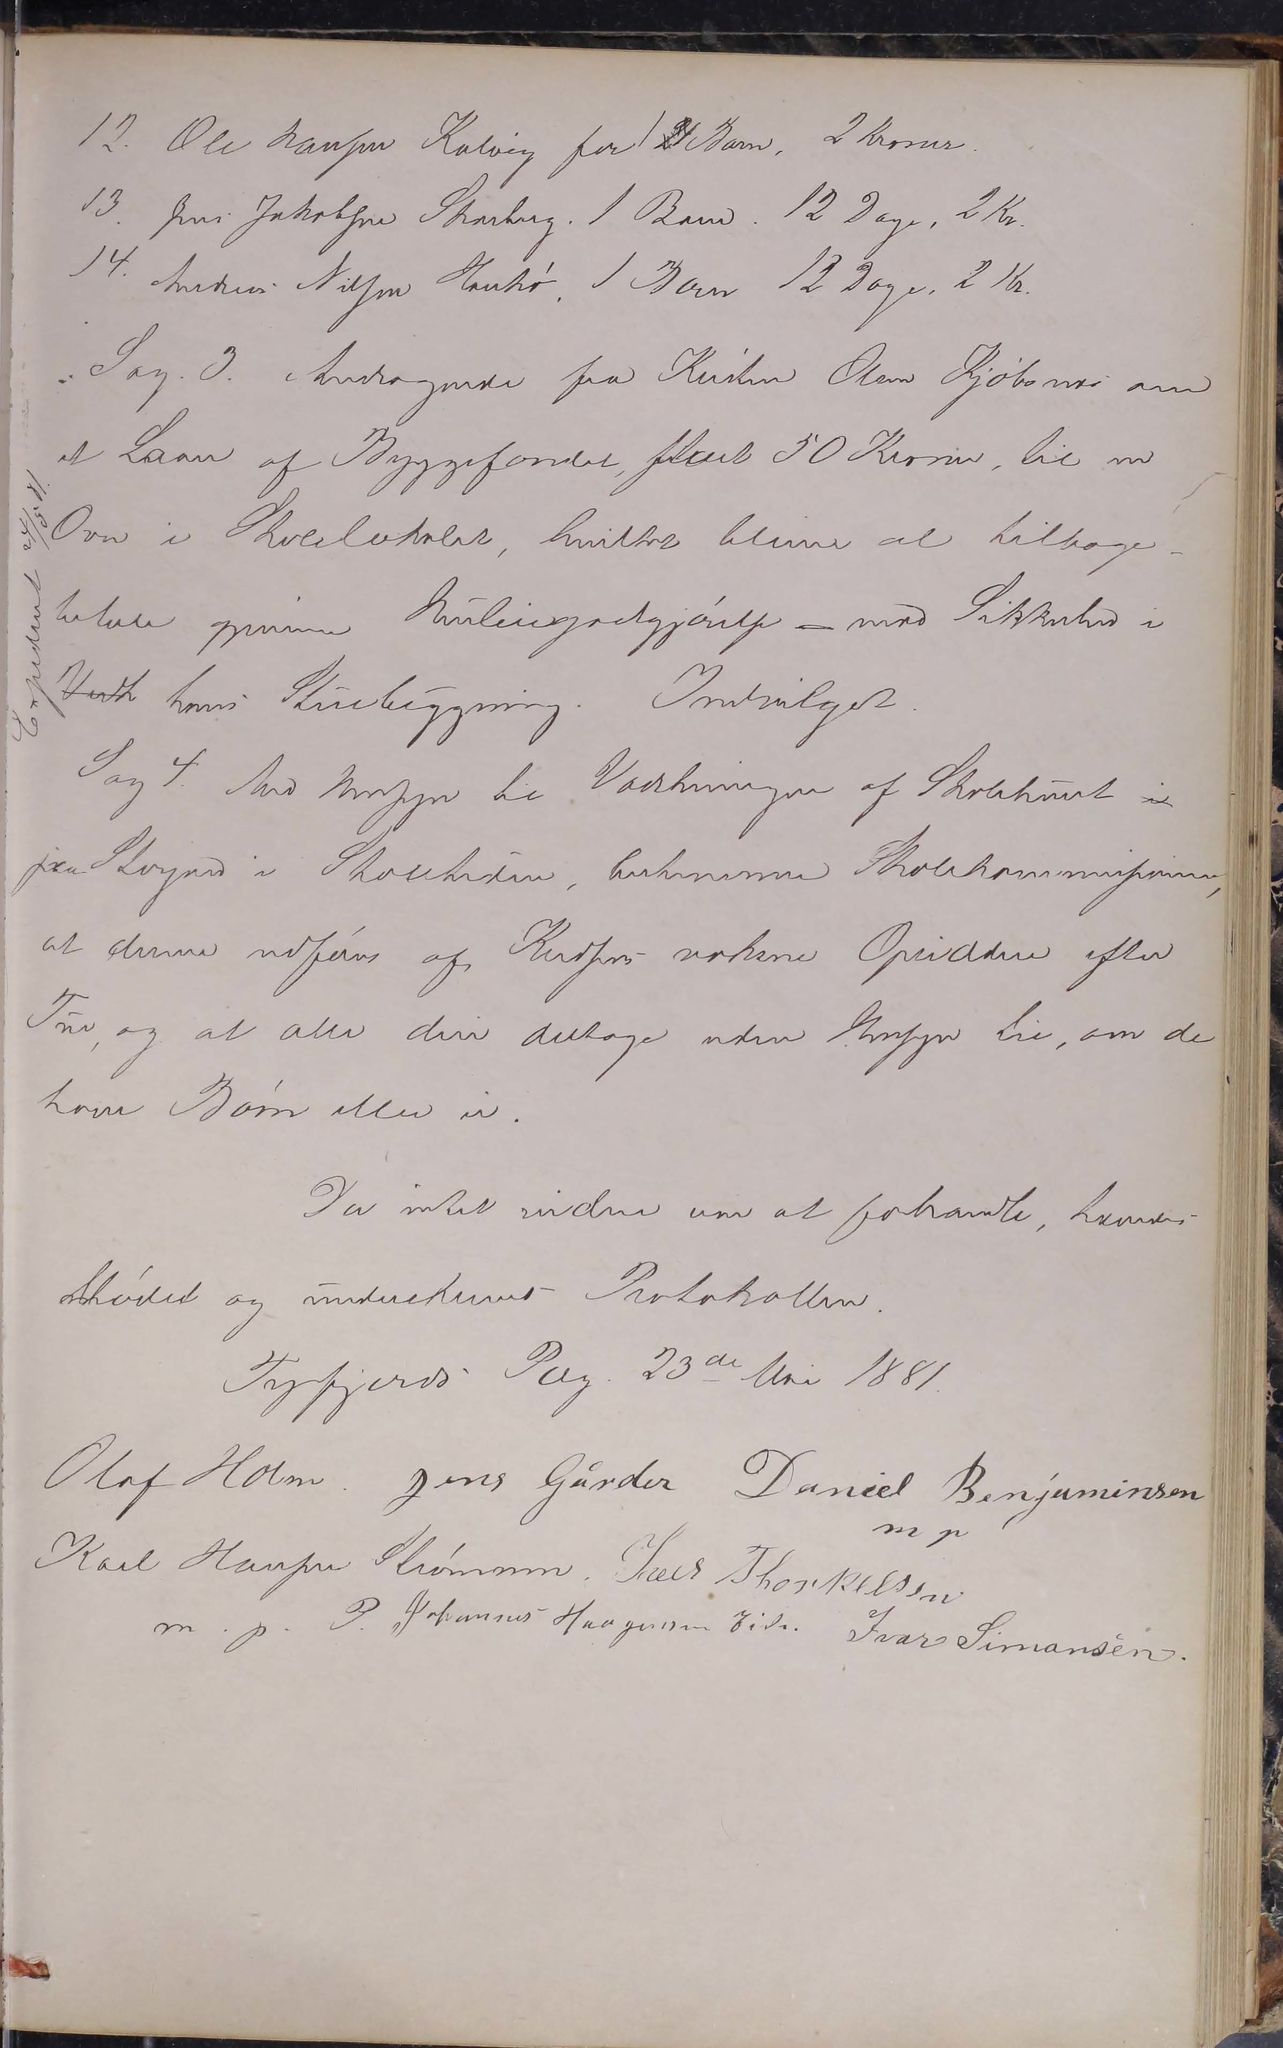 12. Ole Hansen Kalvig for 1 Barn, 2 Kroner.
13. Jens Jakobsen Skarberg. 1 Barn. 12 Dage, 2 Kr.
14. Andreas Nilsen Haukø, 1 Barn 12 Dage, 2 Kr.
Sag. 3. Andragende fra Kirsten Olsen Kjöbsnes om
et Laan af Byggefondet, stort 50 Kroner, til en
Ovn i Skolelokalet, hvilket bliver at tilbage-
betale gjennem Husleiegodtgjörelse - mod Sikkerhed i
hans Stuebygning. Indvilget.
Sag 4. Med Hensyn til Vadskningen af Skolehuset
paa Storjord i Skoletiden, bestemmer Skolekommissionen,
at denne udføres af Kredsens voksne Opsiddere efter
Tur, og at alle deri deltage uden Hensyn til, om de
have Börn eller ei.
Da intet videre var at forhandle, hævedes
Mödet og underskrives Protokollen.
Tysfjords Præg. 23de Mai 1881.
Olaf Holm. Jens Gårder Daniel Benjaminsen
m p
Karl Hansen Strømmen. Thorkelsen
m. p. P. Johannes Haagensen Eide. Ivar Simonsen.
Expederet 25/5 81.